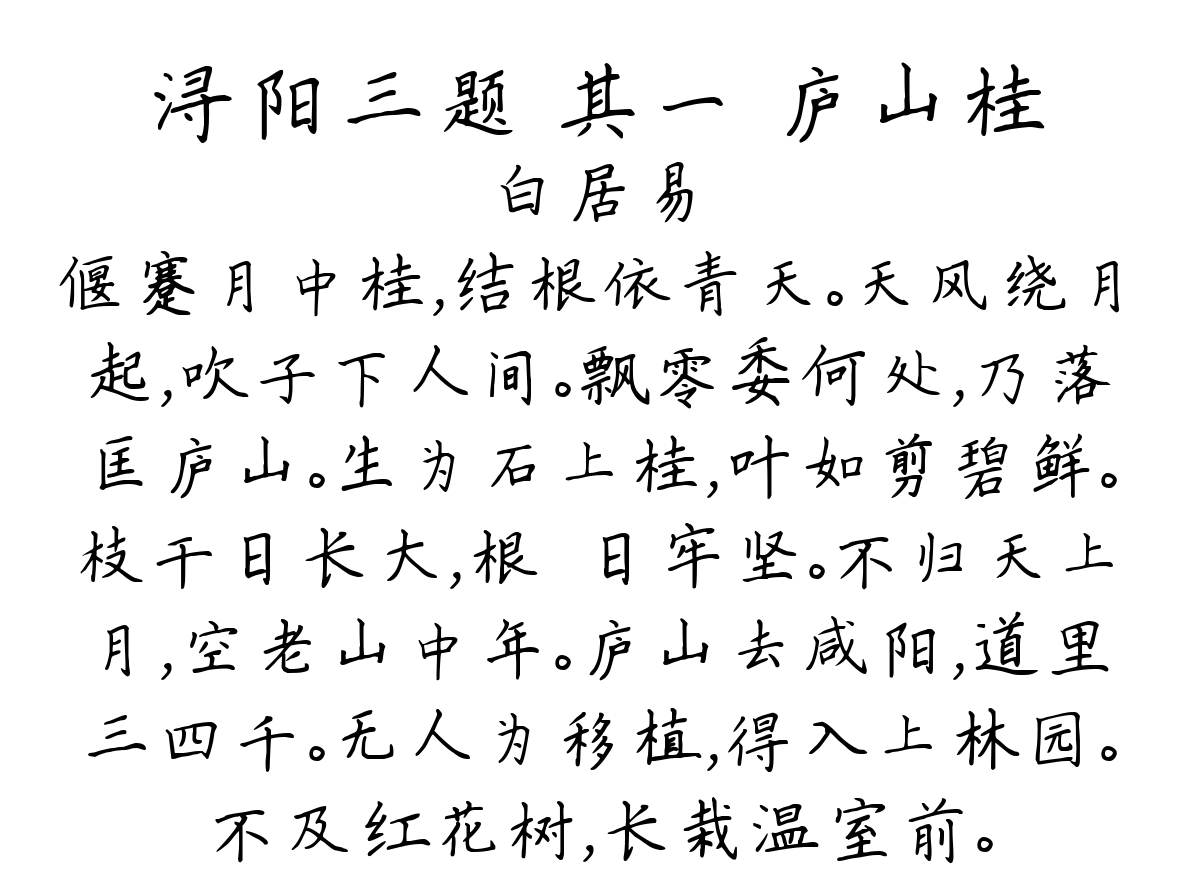 浔阳三题 其一 庐山桂
白居易
偃蹇月中桂,结根依青天。天风绕月
起,吹子下人间。飘零委何处,乃落
匡庐山。生为石上桂,叶如剪碧鲜。
枝干日长大,根 日牢坚。不归天上
月,空老山中年。庐山去咸阳,道里
三四千。无人为移植,得入上林园。
不及红花树,长栽温室前。